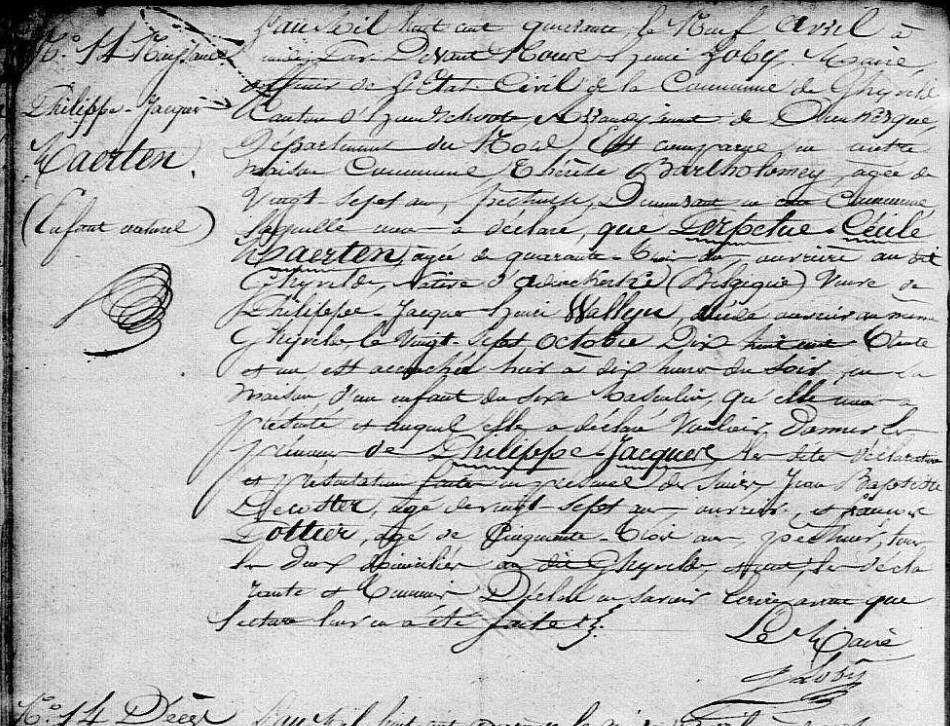 L'an Mil huit cent quarante, le Neuf Avril à
N.o 14 Naissance
midi, Par Devant Nous Henri Zoby, Maire,
officier de l'Etat Civil de la Commune de Ghyvelde
Philippe-Jacques
Canton d'Hondschoote, Arrondissement de Dunkerque,
Maerten.
Département du Nord, Est comparue, en notre
maison Commune Thérèse Bartholomey, agée de
Vingt-Sept ans, Demeurant en cette Commune
(Enfant naturel)
laquelle nous a déclaré, que Perpetue-Cécile
Maerten, agée de quarante-trois ans, ouvrière au dit
Ghyvelde, Native d'adinkerke (Belgique) Veuve de
Philippe-Jacques Henri Wallyn, décédé ouvrier au même
Ghyvelde le Vingt-Sept Octobre Dix huit cent trente
et un est accouchée hier à dix heures du soir, en sa
maison d'un enfant du sexe Masculin, qu'elle nous a
présenté et auquel elle a déclaré Vouloir Donner les
prénoms de Philippe-Jacques, les dites déclaration
et présentation faites en présence des Sieurs Jean Baptiste
Decoster, agé de vingt-sept ans, ouvrier, et
Pottier, agé de Cinquante-trois ans, pêcheur, tous
les deux Domiciliés au dit Ghyvelde, et ont, les décla
rante et témoins Déclaré ne savoir écrire après que
lecture leur en a été faite.
Le Maire
Zoby
N.o 14 Décès
L'an Mil huit cent quarante le